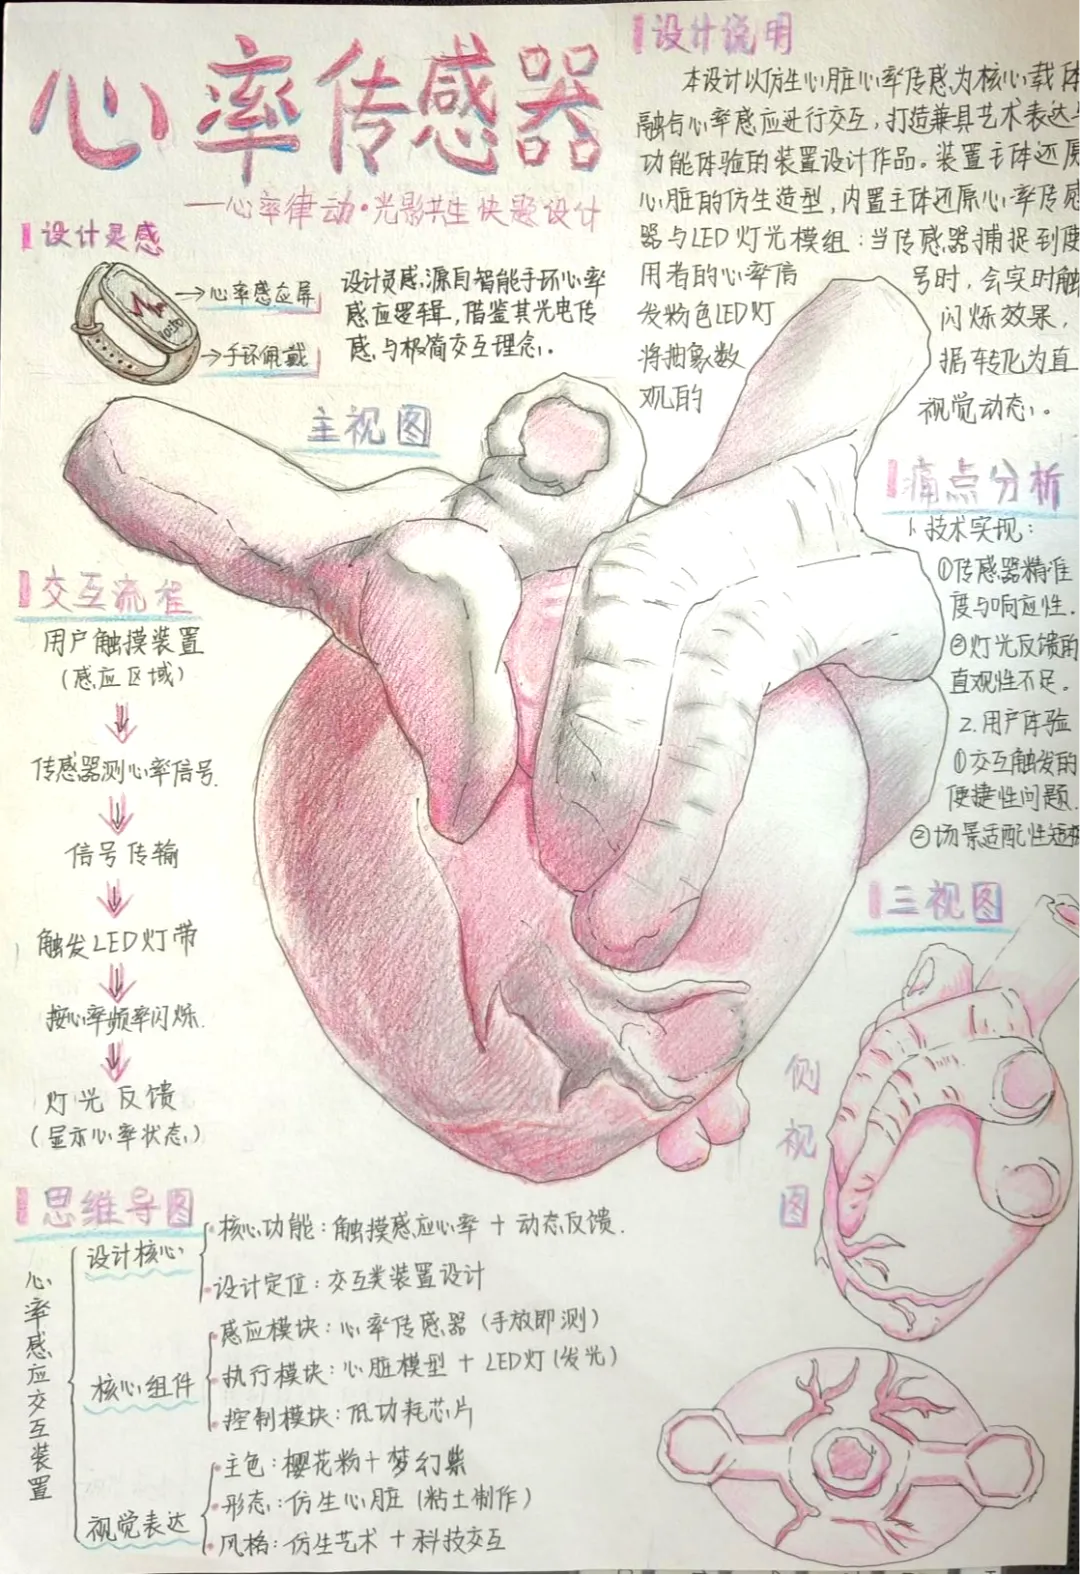 心率传感器
—心率律动·光影共生快题设计
设计灵感
→心率感应屏
→手环佩戴
设计灵感源自智能手环心率
感应逻辑，借鉴其光电传
感与极简交互理念。
设计说明
本设计以仿生心脏心率传感为核心载体
融合心率感应进行交互，打造兼具艺术表达与
功能体验的装置设计作品。装置主体还原
心脏的仿生造型，内置主体还原心率传感
器与LED灯光模组：当传感器捕捉到使
用者的心率信号时，会实时触
发粉色LED灯闪烁效果，
将抽象数据转化为直
观的视觉动态。
主视图
痛点分析
1.技术实现：
①传感器精准
度与响应性.
②灯光反馈的
直观性不足。
2.用户体验
①交互触发的
便捷性问题.
②场景适配性短板
交互流程
用户触摸装置
（感应区域）
传感器测心率信号.
信号传输
触发LED灯带
按心率频率闪烁.
灯光反馈
（显示心率状态）
三视图
侧视图
思维导图
心率感应交互装置
设计核心
·核心功能：触摸感应心率＋动态反馈.
·设计定位：交互类装置设计
核心组件
·感应模块：心率传感器（手放即测）
·执行模块：心脏模型＋LED灯（发光）
·控制模块：低功耗芯片
视觉表达
·主色：樱花粉＋梦幻紫
·形态：仿生心脏（粘土制作）
·风格：仿生艺术＋科技交互